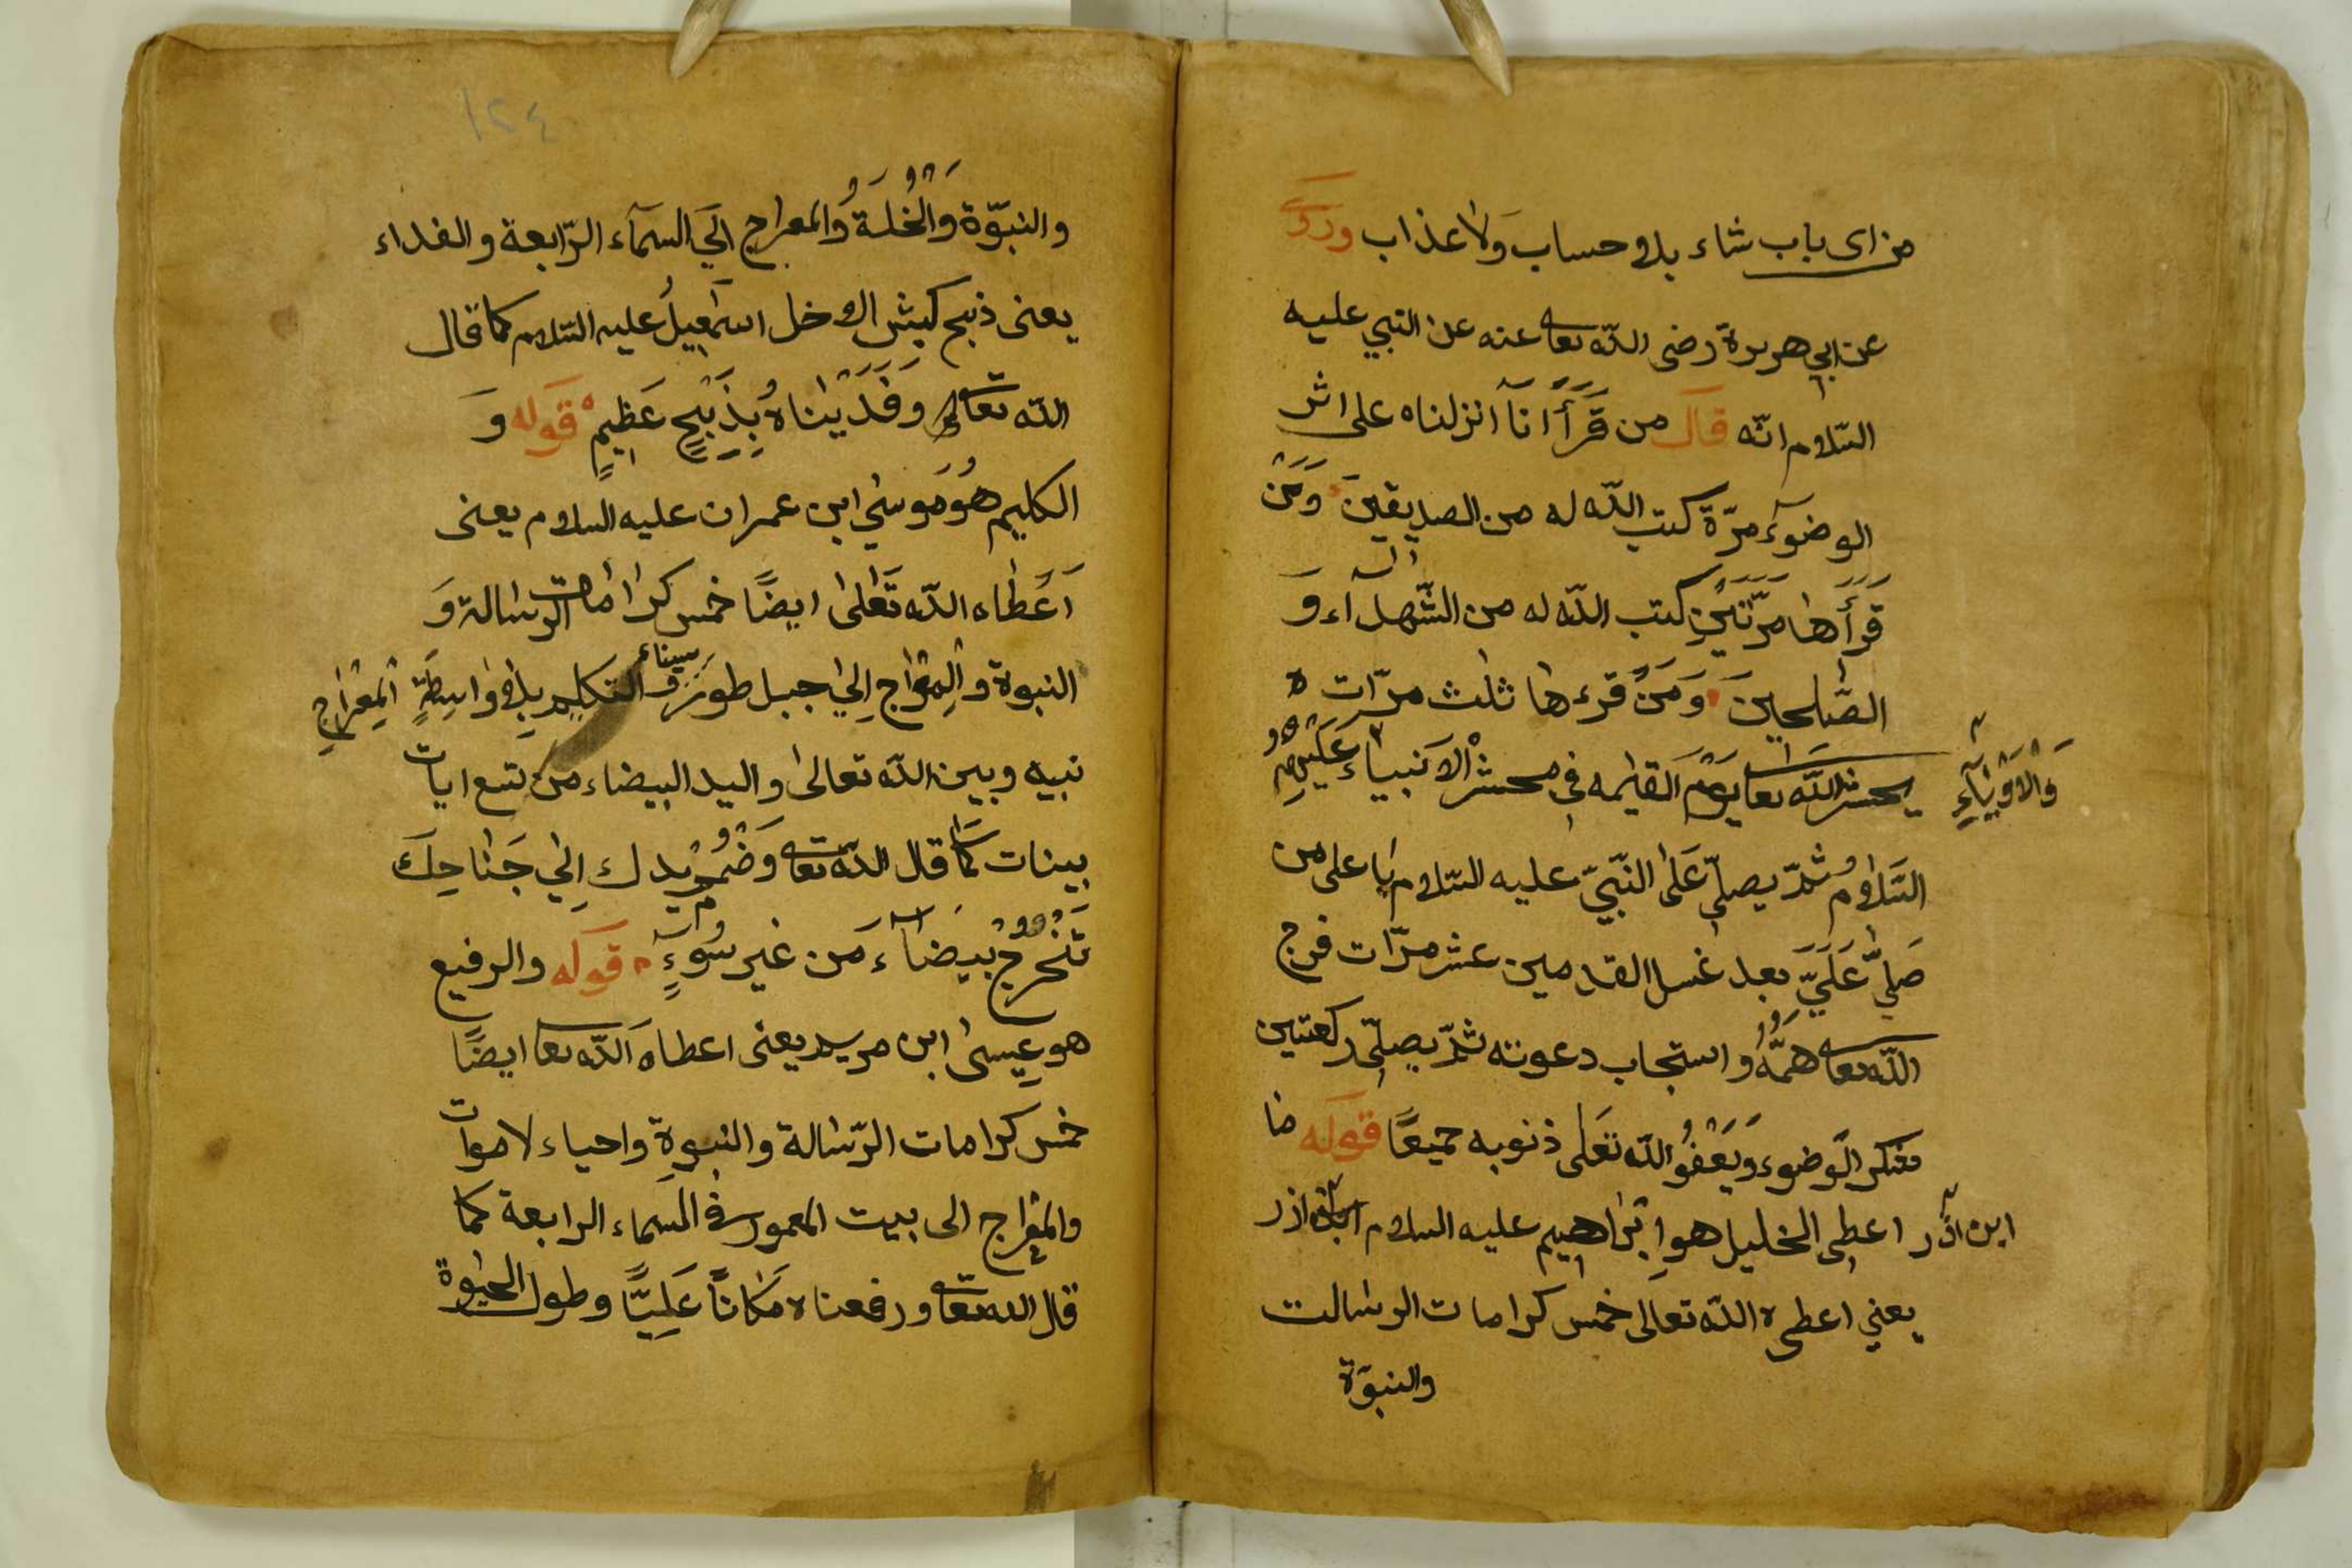 من اى باب شاء بلا حساب وَلا عذاب وروى
عن ابي هريرة رضى اللّه تعا عنه عن النبي عليه
السّلام انّه قال من قَرَأَ انّا انزلناه على اثر
الوضوءِ مرّة كتب اللّه له من الصديقينَ وَمَنْ
قَرَأَها مرّتَيْنِ كتب اللّه له من الشّهدآء وَ
الصّٰلحينَ وَمَنْ قرءها ثلٰث مرّات ه
يحشر اللّه تعا يَوْمَ القيٰمه فى محشر الاَنبياءِ عَلَيْهِمُ
وَالْاَوْلِيَآءِ
السّلامُ ثمّ يصلّى عَلَى النّبىّ عليه السّلام يا على من
صَلّى عَلَىَّ بعد غسل القدمين عشر مرّات فرج
اللّه تعا هَمَّهُ واستجاب دعوته ثمّ يصلّى ركعتين
الوضوء وَيَغْفُرُ اللّه تعَلى ذنوبه جميعًا قوله
ابن اذر اعطى الخليل هو اِبْرٰاهيم عليه السلام ابن اذر
يعني اعطىه اللّه تعالى خمس كرامات الرسالت
والنبوّة
١٢٤
والنبوّة وَالْخُلَةُ وَالمعراج اِلَى السمآء الرّابعة والفداء
يعنى ذبح كبش الاخل اسمٰعيلُ عليه السّلام كما قال
اللّه تعالى وَفَدَيْنٰاهُ بِذَبْحٍ عَظِيمٍ قوله وَ
الكليم هُوَ مُوسٰي ابن عمران عليه السلام يعنى
اَعْطاه اللّه تعَالىٰ ايضًا خمس كرامات الرسالة وَ
النبوة والمِعْرٰاج اِلىٰ جبل طور سيناء و التكليم بلا وٰاسِطَةٍ المِعْرٰاجِ
نبيه وبين اللّه تعالىٰ واليد البيضاء من تسع ايات
بينات كما قال اللّه تعا وَضْمُمْ يدك اِلىٰ جَنٰاحِكَ
تَخْرُجْ بَيضآءَ مَن غير سُوءٍ قوله والرفيع
هو عِيسىٰ ابن مريم يعنى اعطاه اللّه تعا ايضًا
خمس كرامات الرّسٰالة والنبوةِ واحياء لاموات
والمعْرٰاج الى بيت المعمور فى السماء الرابعة كما
قال اللّه تعا ورفعناه مَكٰانًا عَلِيًّا وطول الحيٰوة